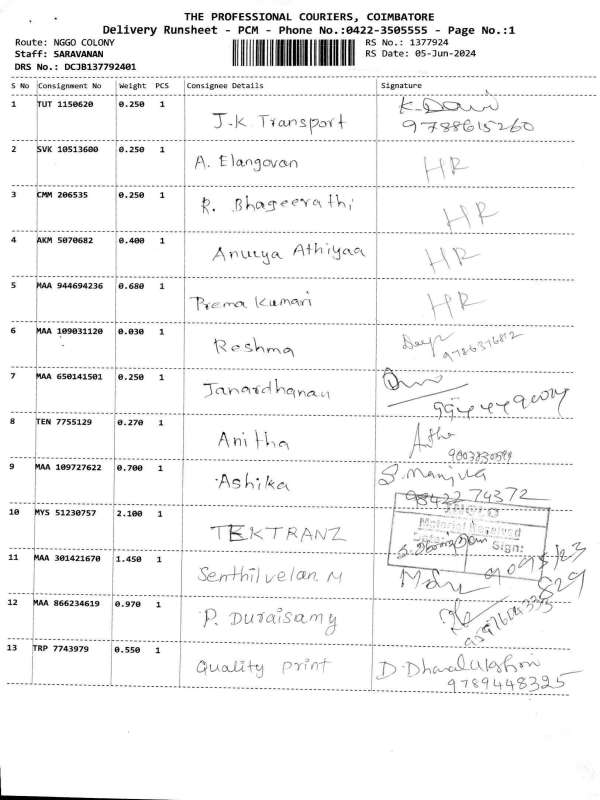 THE PROFESSIONAL COURIERS, COIMBATORE
Delivery Runsheet - PCM - Phone No.:0422-3505555 - Page No.:1
Route: NGGO COLONY RS No.: 1377924
Staff: SARAVANAN RS Date: 05-Jun-2024
DRS No.: DCJB137792401
S No Consignment No Weight PCS Consignee Details Signature
1 TUT 1150620 0.250 1 J.K Transport
9788615260
2 SVK 10513600 0.250 1 A. Elangovan HR
3 CMM 206535 0.250 1 R. Bhageerathi HR
4 AKM 5070682 0.400 1 Anurya Athiyaa HR
5 MAA 944694236 0.680 1 Prema Kumari HR
6 MAA 109031120 0.030 1 Reshma
7 MAA 650141501 0.250 1 Janardhanan
8 TEN 7755129 0.270 1 Anitha
9 MAA 109727622 0.700 1 Ashika S. Manjula
98422 74372
10 MYS 51230757 2.100 1 TEKTRANZ
Material Received
Sign:
11 MAA 301421670 1.450 1 Senthilvelan M
12 MAA 866234619 0.970 1 P. Duraisamy
13 TRP 7743979 0.550 1 Quality print
9789448325